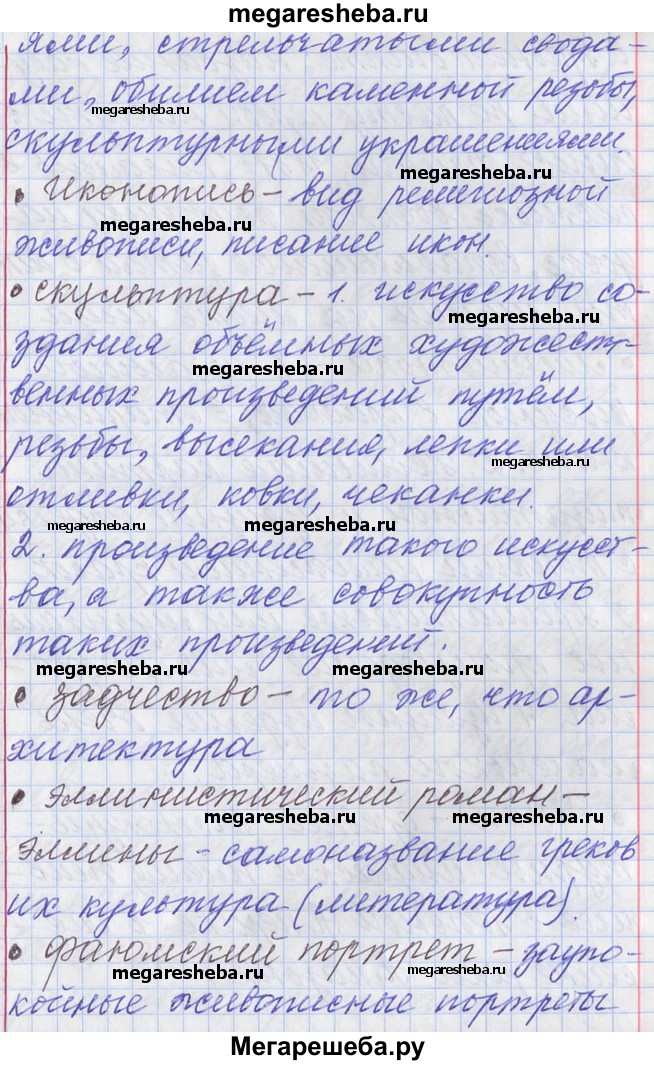 megaresheba.ru
ями, стрельчатыми свода-
ми, обилием каменной резьбы,
megaresheba.ru
скульптурными украшениями.
megaresheba.ru
• Иконопись – вид религиозной
megaresheba.ru
живописи, писание икон.
• скульптура – 1. искусство со-
megaresheba.ru
здания объёмных художест-
megaresheba.ru
венных произведений путём,
резьбы, высекания, лепки или
megaresheba.ru
отливки, ковки, чеканки.
megaresheba.ru megaresheba.ru
2. произведение такого искусст-
ва, а также совокупность
таких произведений.
megaresheba.ru megaresheba.ru
• задчество – то же, что ар-
хитектура
• эллинистический роман –
megaresheba.ru megaresheba.ru
Эллины – самоназвание греков
их культура (литература).
• фаюмский портрет – заупо-
megaresheba.ru megaresheba.ru
койные живописные портреты
Мегарешеба.ру